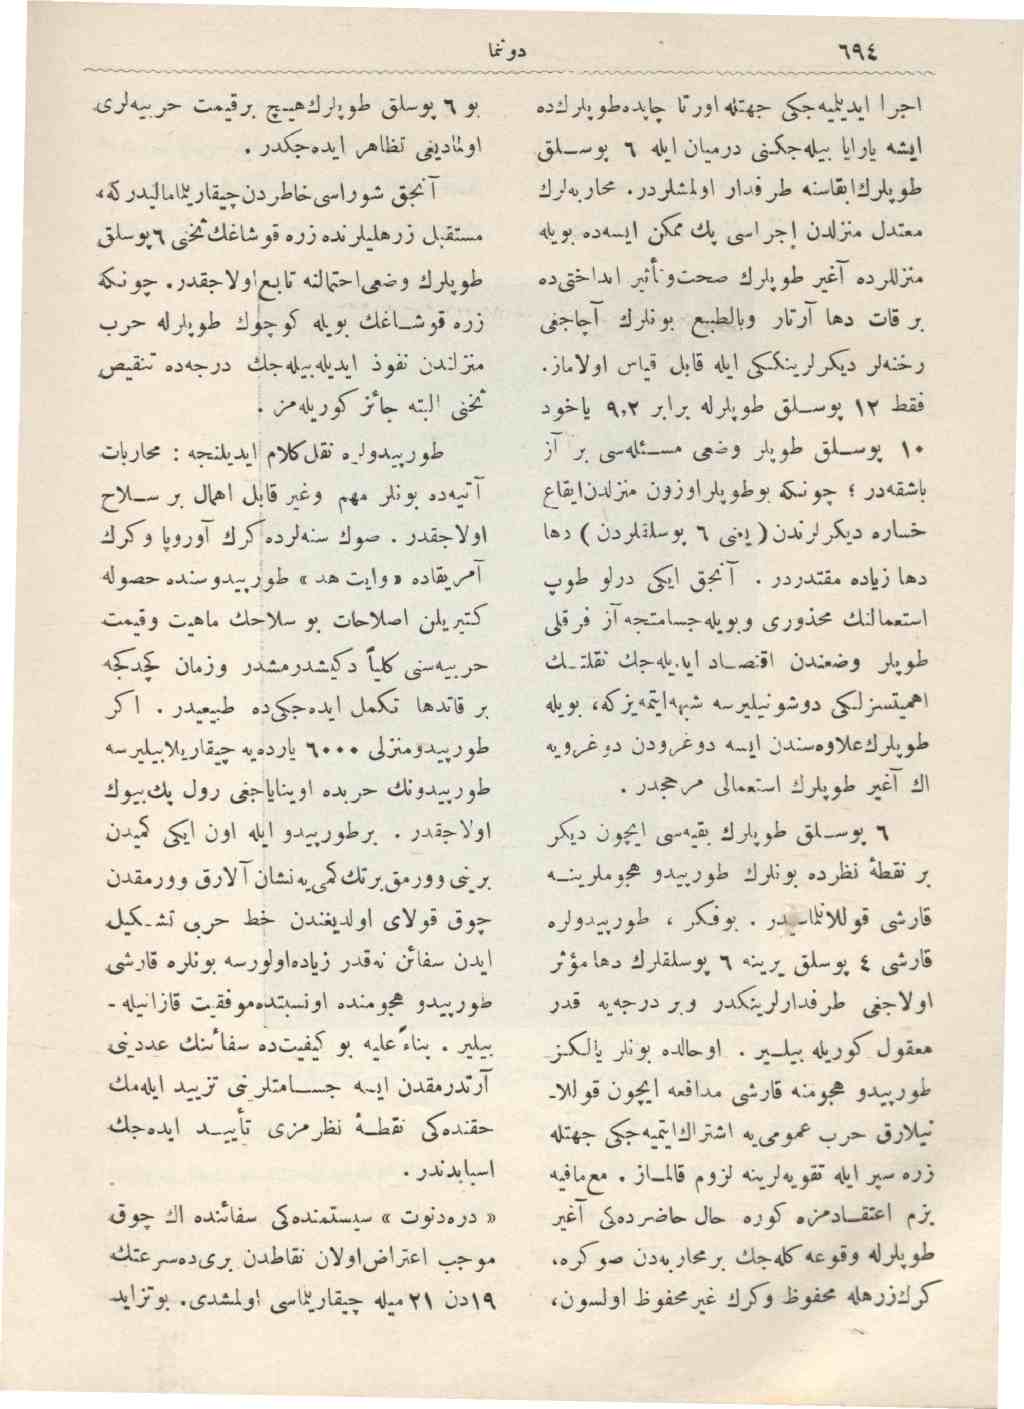 ٦٩٤
دوننما
اجرا ايديلميه‌جكى جهتله اورتا چاپده‌طوپلرك‌ده
ايشه يارايا بيله‌جكنى درميان ايله ٦ پوسـلق
طوپلرك‌ابقاسنه طرفدار اولمشلردر. محاربه‌لرك
معتدل منزلدن اجراسى پك ممكن ايسه‌ده بويله
منزللرده آغير طوپلرك صحت‌و تأثير انداختى‌ده
بر قات دها آرتار وبالطبع بونلرك آچاجغى
رخنه‌لر ديكرلرينككى ايله قابل قياس اولاماز.
فقط ١٢ پوسـلق طوپلرله برابر ٩,٢ ياخود
١٠ پوسـلق طوپلر وضعى مسـئله‌سى بر آز
باشقه‌در ؛ چونكه بوطوپلر اوزون منزلدن‌ايقاع
خساره ديكرلرندن (يعنى ٦ پوسلقلردن) دها
دها زياده مقتدردر . آنجق ايكى درلو طوپ
استعمالنك محذورى وبويله‌جسامتجه آز فرقلى
طوپلر وضعندن اقتصـاد ايديله‌جك نقلتـك
اهميتسزلكى دوشونيليرسه شبهه‌ايتمه‌يزكه، بويله
طوپلرك‌علاوه‌سندن ايسه دوغرودن دوغرويه
اك آغير طوپلرك استعمالى مرجحدر .
٦ پوسـلق طوپلرك بقيه‌سى ايچون ديكر
بر نقطهٔ نظرده بونلرك طورپيدو هجوملرينـه
قارشى قوللانلماسيدر . بوفكر ، طورپيدولره
قارشى ٤ پوسلق يرينه ٦ پوسلقلرك دها مؤثر
اولاجغى طرفدارلرينكدر وبر درجه‌يه قدر
معقول كوريله بيلـير . اوحالده بونلر يالكـز
طورپيدو هجومنه قارشى مدافعه ايچون قوللا-
نيلارق حرب عمومى‌يه اشتراك‌ايتميه‌جكى جهتله
زره سپر ايله تقويه‌لرينه لزوم قالمـاز . مع‌مافيه
بزم اعتقـادمزه كوره حال حاضرده‌كى آغير
طوپلرله وقوعه كله‌جك بر محاربه‌دن صوكره،
كرك‌زرهله محفوظ وكرك غيرمحفوظ اولسون،
بو ٦ پوسلق طوپلرك هيـچ برقيمت حربيه‌لرى
اولماديغى تظاهر ايده‌جكدر .
آنجق شوراسى خاطردن‌چيقاريلمامالیدركه،
مستقبل زرهليلرنده زره قوشاغك ثخنى ٦ پوسلق
طوپلرك وضعى‌احتمالنه تابع اولاجقدر. چونكه
زره قوشـاغك بويله كوچوك طوپلرله حرب
منزلندن نفوذ ايديله‌بيله‌جك درجه‌ده تنقيص
ثخنى البته جائز كوريله‌مز .
طورپيدولره نقل‌كلام ايديلنجه : محاربات
آتيه‌ده بونلر مهم وغير قابل اهمال بر سـلاح
اولاجقدر . صوك سنه‌لرده كرك آوروپا وكرك
آمريقاده «وايت هد» طورپيدوسنده حصوله
كتيريلن اصلاحات بو سلاحك ماهيت وقيمت
حربيه‌سنى كلياً دكيشدرمشدر وزمان كچدكجه
بر قاتدها تكمل ايده‌جكى‌ده طبيعيدر . اكر
طورپيدومنزلى ٦٠٠٠ يارده‌يه چيقاريلابيليرسه
طورپيدونك حربده اوينايا‌جغى رول پك‌بيوك
اولاجقدر . برطورپيدو ايله اون ايكى كميدن
برينى وورمق‌برتك‌كمى‌يه نشان آلارق وورمقدن
چوق قولاى اولديغندن خط حربى تشـكيل
ايدن سفائن نه‌قدر زياده‌اولورسه بونلره قارشى
طورپيدو هجومنده اونسبتده‌موفقيت قازانيله-
بيلير . بناءً عليه بو كيفيت‌ده سفائنك عددينى
آرتدرمقدن ايسه جسـامتلرنى تزييد ايله‌مك
حقنده‌كى نقطـهٔ نظرمزى تأييـد ايده‌جك
اسبابدندر .
« دره‌دنوت » سيستمنده‌كى سفائنده اك چوق
موجب اعتراض‌اولان نقاطدن برى‌ده‌سرعتك
١٩دن ٢١ ميله چيقاريلماسى اولمشدى. بوتزايد